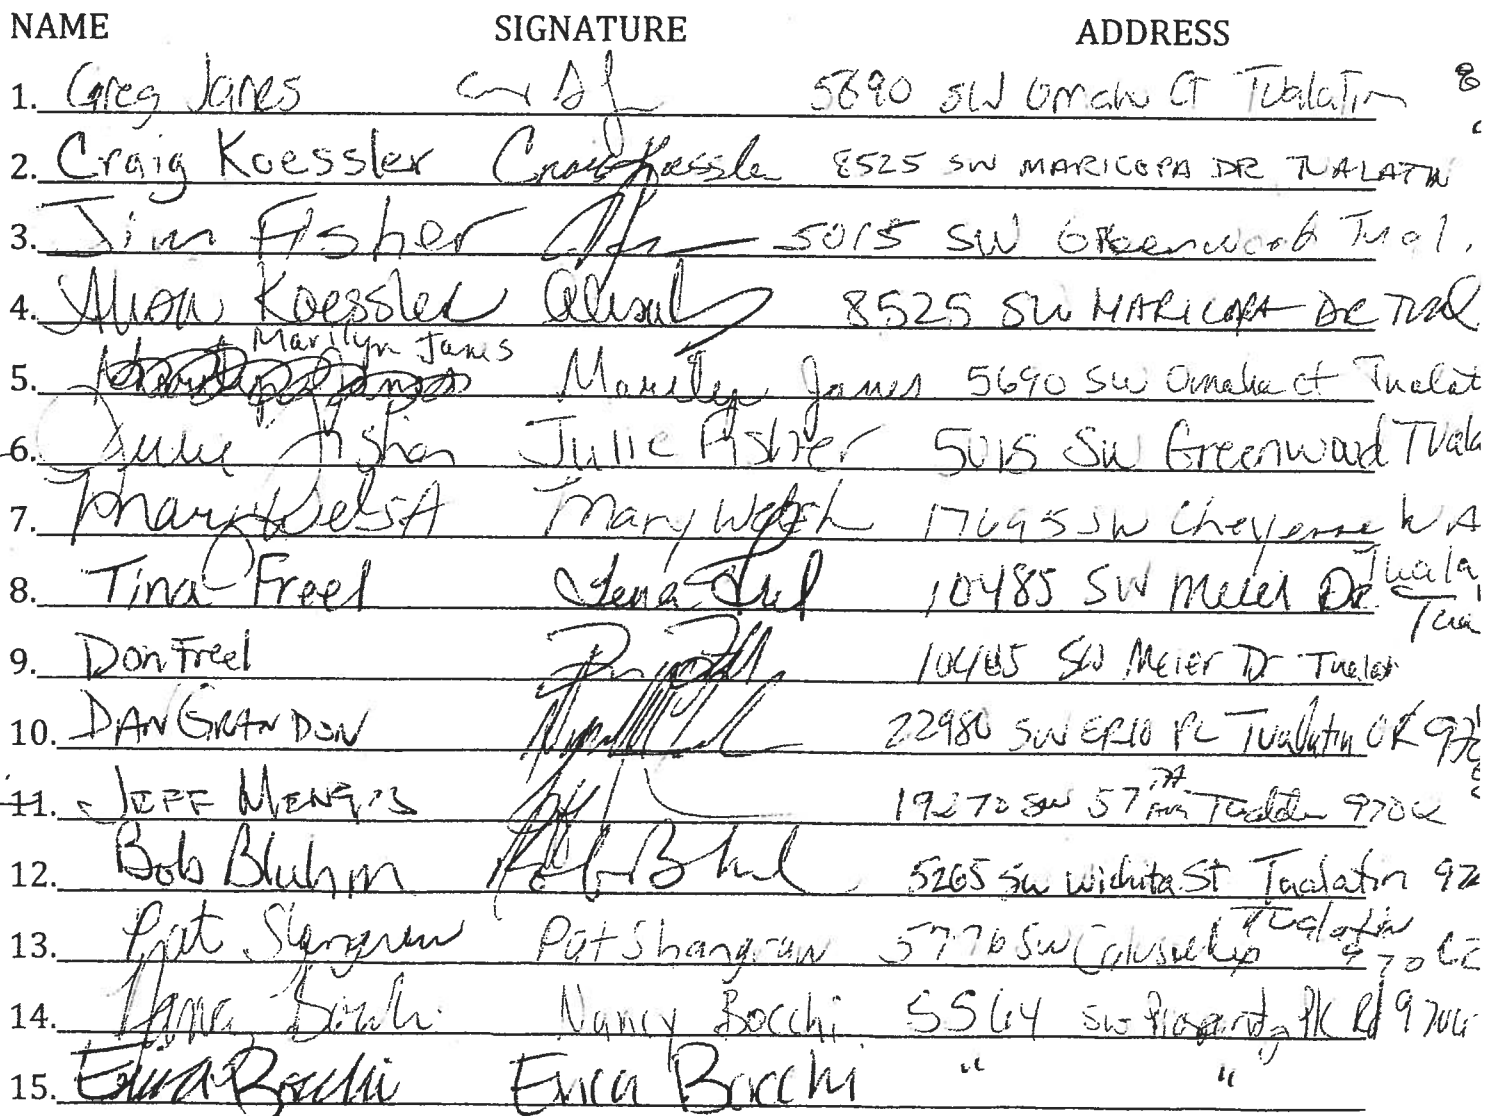 NAME SIGNATURE ADDRESS
1. Greg Janes 5690 SW Omaha Ct Tualatin
2. Craig Koessler Craig Koessler 8525 SW MARICOPA DR TUALATIN
3. Jim Fisher 5015 SW Greenwood Tual.
4. Alison Koessler Alison 8525 SW MARICOPA DR Tual
Marilyn Janes
5. Marilyn Janes 5690 SW Omaha Ct Tualat
6. Julie Fisher Julie Fisher 5015 SW Greenwood Tuala
7. Mary Welsh Mary Welsh 17695 SW Cheyenne
Tuala
8. Tina Freel Tina Freel 10485 SW Meier Dr
Tua
9. Don Freel 10485 SW Meier Dr Tualat
10. DAN GRANDON 22980 SW ERIO PL Tualatin OR 970
11. JEFF 19270 SW 57TH Ave Tualatin 9706
12. Bob Bluhm 5265 SW Wichita St Tualatin 97
Tualatin
13. Pat Shangraw Pat Shangraw 5776 SW 97062
14. Nancy Bocchi Nancy Bocchi 5564 SW Rd 9706
15. Erica Bocchi Erica Bocchi " "